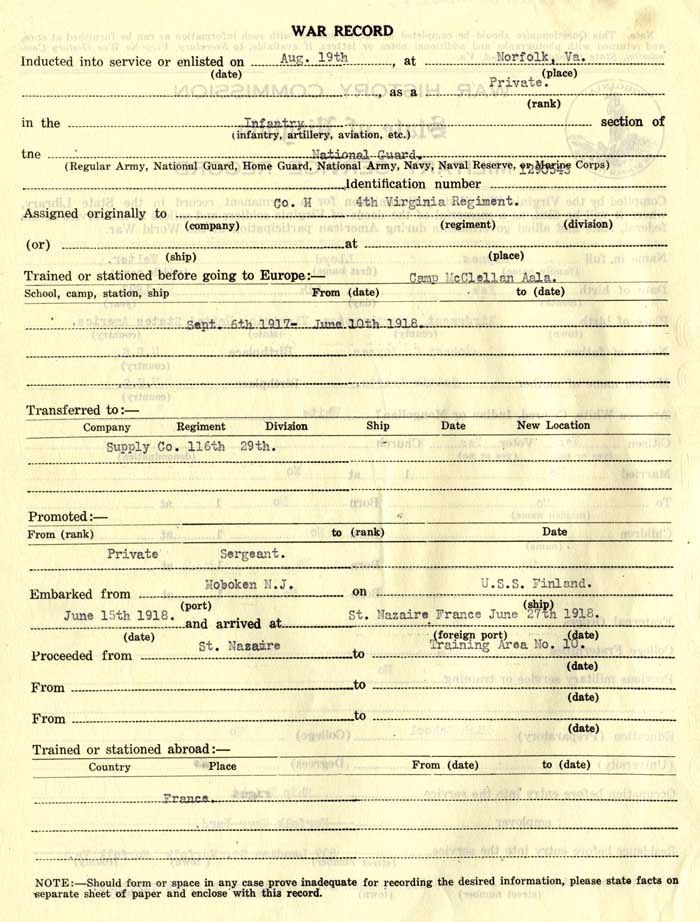 WAR RECORD
Inducted into service or enlisted on Aug. 19th , at Norfolk, Va.
(date) (place)
, as a Private.
(rank)
in the Infantry section of
(infantry, artillery, aviation, etc.)
tne National Guard.
(Regular Army, National Guard, Home Guard, National Army, Navy, Naval Reserve, or Marine Corps)
Identification number 1290543
Assigned originally to Co. H 4th Virginia Regiment.
(company) (regiment) (division)
(or) at
(ship) (place)
Trained or stationed before going to Europe:— Camp McClellan Aala.
School, camp, station, ship From (date) to (date)
Sept. 6th 1917- June 10th 1918.
Transferred to:—
Company Regiment Division Ship Date New Location
Supply Co. 116th 29th.
Promoted:—
From (rank) to (rank) Date
Private Sergeant.
Embarked from Hoboken N.J. on U.S.S. Finland.
(port) (ship)
June 15th 1918. and arrived at St. Nazaire France June 27th 1918.
(date) (foreign port) (date)
Proceeded from St. Nazaire to Training Area No. 10.
(date)
From to
(date)
From to
(date)
Trained or stationed abroad:—
Country Place From (date) to (date)
France.
NOTE:—Should form or space in any case prove inadequate for recording the desired information, please state facts on
separate sheet of paper and enclose with this record.